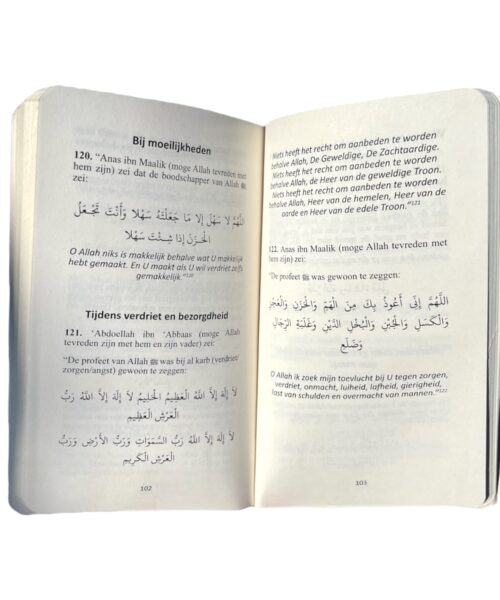 Bij moeilijkheden
120. “Anas ibn Maalik (moge Allah tevreden met
hem zijn) zei dat de boodschapper van Allah ﷺ
zei:
اللَّهُمَّ لَا سَهْلَ إِلَّا مَا جَعَلْتَهُ سَهْلًا وَأَنْتَ تَجْعَلُ
الْحَزْنَ إِذَا شِئْتَ سَهْلًا
O Allah niks is makkelijk behalve wat U makkelijk
hebt gemaakt. En U maakt als U wil verdriet zelfs
gemakkelijk.”120
Tijdens verdriet en bezorgdheid
121. ‘Abdoellah ibn ‘Abbaas (moge Allah
tevreden zijn met hem en zijn vader) zei:
“De profeet van Allah ﷺ was bij al karb (verdriet/
zorgen/angst) gewoon te zeggen:
لَا إِلَهَ إِلَّا اللَّهُ الْعَظِيمُ الْحَلِيمُ لَا إِلَهَ إِلَّا اللَّهُ رَبُّ
الْعَرْشِ الْعَظِيمِ
لَا إِلَهَ إِلَّا اللَّهُ رَبُّ السَّمَوَاتِ وَرَبُّ الْأَرْضِ وَرَبُّ
الْعَرْشِ الْكَرِيمِ
102
Niets heeft het recht om aanbeden te worden
behalve Allah, De Geweldige, De Zachtaardige.
Niets heeft het recht om aanbeden te worden
behalve Allah, de Heer van de geweldige Troon.
Niets heeft het recht om aanbeden te worden
behalve Allah, Heer van de hemelen, Heer van de
aarde en Heer van de edele Troon.”121
122. Anas ibn Maalik (moge Allah tevreden met
hem zijn) zei:
“De profeet ﷺ was gewoon te zeggen:
اللَّهُمَّ إِنِّي أَعُوذُ بِكَ مِنَ الْهَمِّ وَالْحَزَنِ وَالْعَجْزِ
وَالْكَسَلِ وَالْجُبْنِ وَالْبُخْلِ الدَّيْنِ وَغَلَبَةِ الرِّجَالِ
وَضَلَعِ
O Allah ik zoek mijn toevlucht bij U tegen zorgen,
verdriet, onmacht, luiheid, lafheid, gierigheid,
last van schulden en overmacht van mannen.”122
103